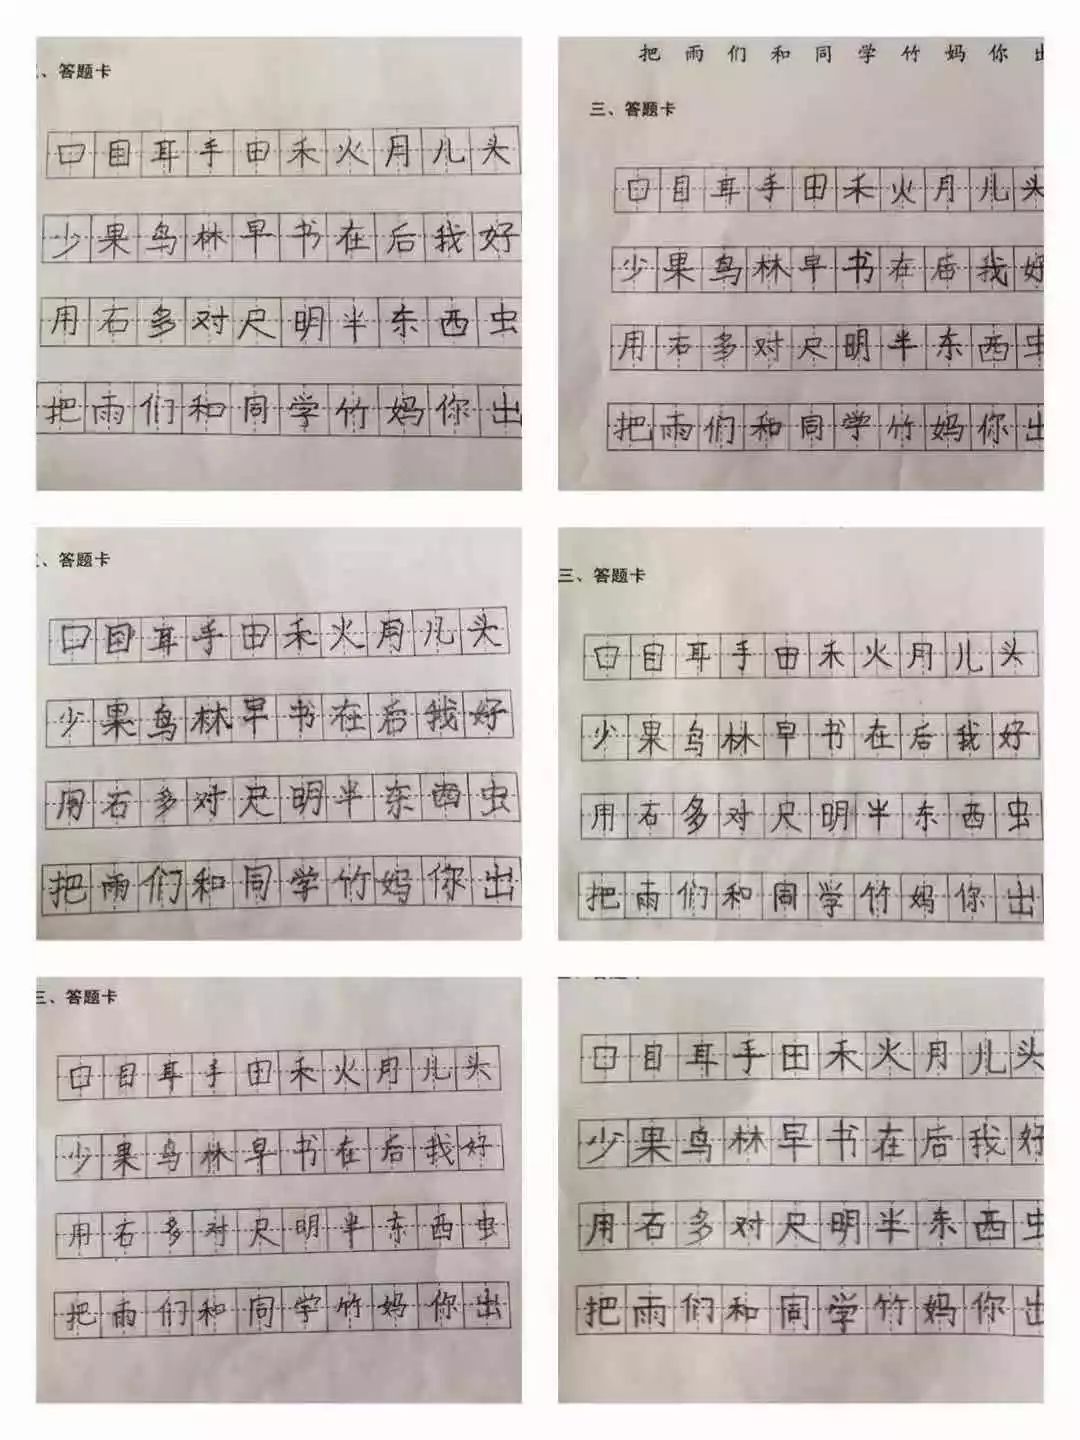 、答题卡
口目耳手田禾火月儿头
少果鸟林早书在后我好
用右多对尺明半东西虫
把雨们和同学竹妈你出
把雨们和同学竹妈你出
三、答题卡
口目耳手田禾火月儿头
少果鸟林早书在后我好
用右多对尺明半东西虫
把雨们和同学竹妈你出
、答题卡
口目耳手田禾火月儿头
少果鸟林早书在后我好
用右多对尺明半东西虫
把雨们和同学竹妈你出
三、答题卡
口目耳手田禾火月儿头
少果鸟林早书在后我好
用右多对尺明半东西虫
把雨们和同学竹妈你出
三、答题卡
口目耳手田禾火月儿头
少果鸟林早书在后我好
用右多对尺明半东西虫
把雨们和同学竹妈你出
口目耳手田禾火月儿头
少果鸟林早书在后我好
用石多对尺明半东西虫
把雨们和同学竹妈你出